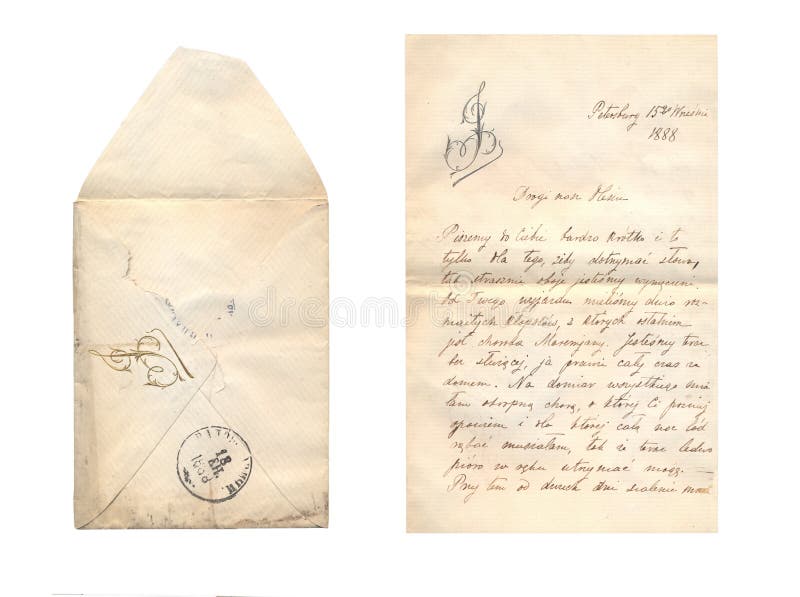 Petersburg 15go Wrześnie
1888
Drogi nasz Olesiu
Piszemy do Ciebie bardzo krótko i to
tylko dla tego, żeby dotrzymać słowa,
tak strasznie oboje jesteśmy wymęczeni.
Od Twego wyjazdu mieliśmy dużo roz-
maitych kłopotów, z których ostatnim
jest choroba Maremjany. Jesteśmy teraz
bez służącej, ja prawie cały czas za
domem. Na domiar wszystkiego mia
łam okropną chorą, o której Ci później
opowiem i dla której całą noc lód
rąbać musiałam, tak że teraz ledwo
pióro w ręku utrzymać mogę.
Przy tem od dwóch dni szalenie
18
1888
dreamstime